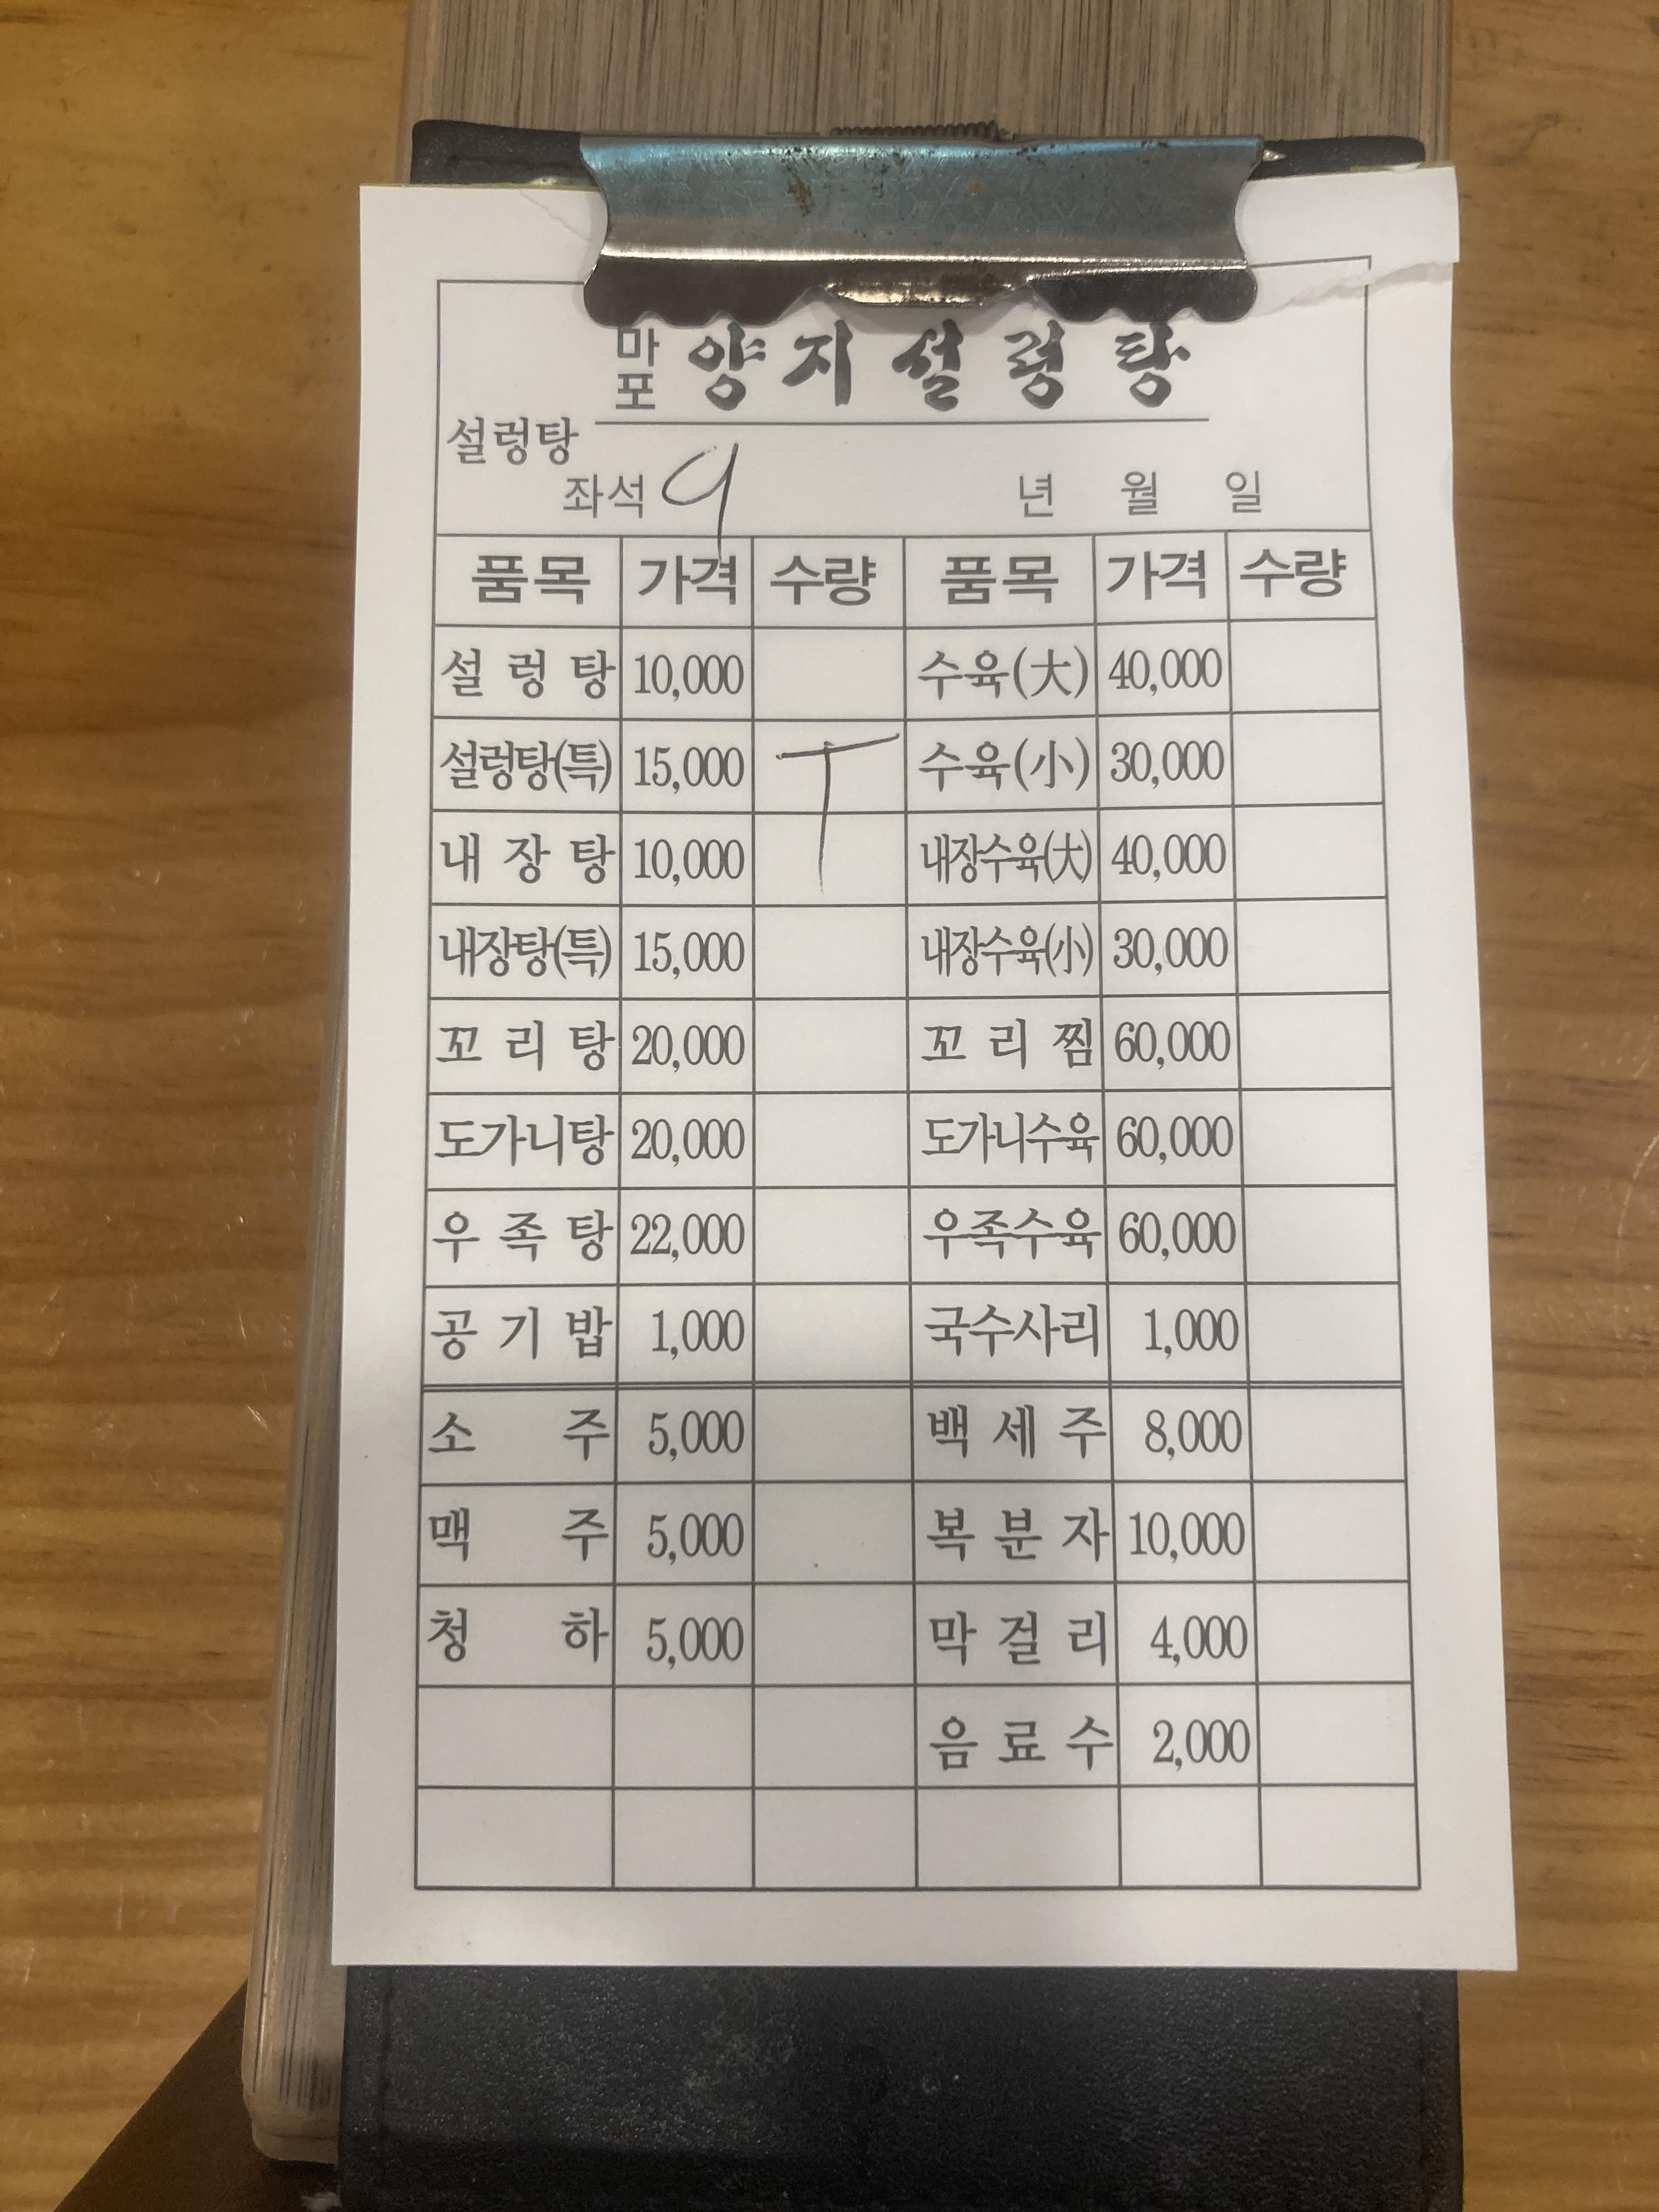 마포 양지설렁탕
설렁탕
좌석 9 년 월 일
품목 가격 수량 품목 가격 수량
설렁탕 10,000 수육(大) 40,000
설렁탕(특) 15,000 T 수육(小) 30,000
내장탕 10,000 내장수육(大) 40,000
내장탕(특) 15,000 내장수육(小) 30,000
꼬리탕 20,000 꼬리찜 60,000
도가니탕 20,000 도가니수육 60,000
우족탕 22,000 우족수육 60,000
공기밥 1,000 국수사리 1,000
소주 5,000 백세주 8,000
맥주 5,000 복분자 10,000
청하 5,000 막걸리 4,000
음료수 2,000